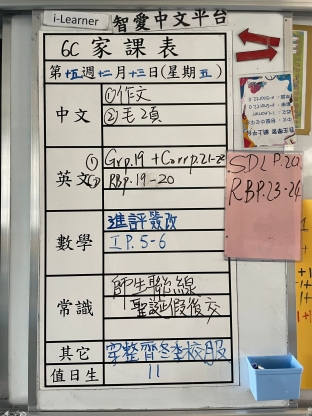 i-Learner 智愛中文平台
6C 家課表
第十五週十二月十三日(星期五)
中文 ①作文
②毛項
英文 ① Grp.19 + Corrp.21-22
② RBp.19-20
SDLP.20
RBP.23-24
數學 進評簽改
IP.5-6
常識 師生聯線
聖誕假後交
其它 穿整齊冬季校服
值日生 11